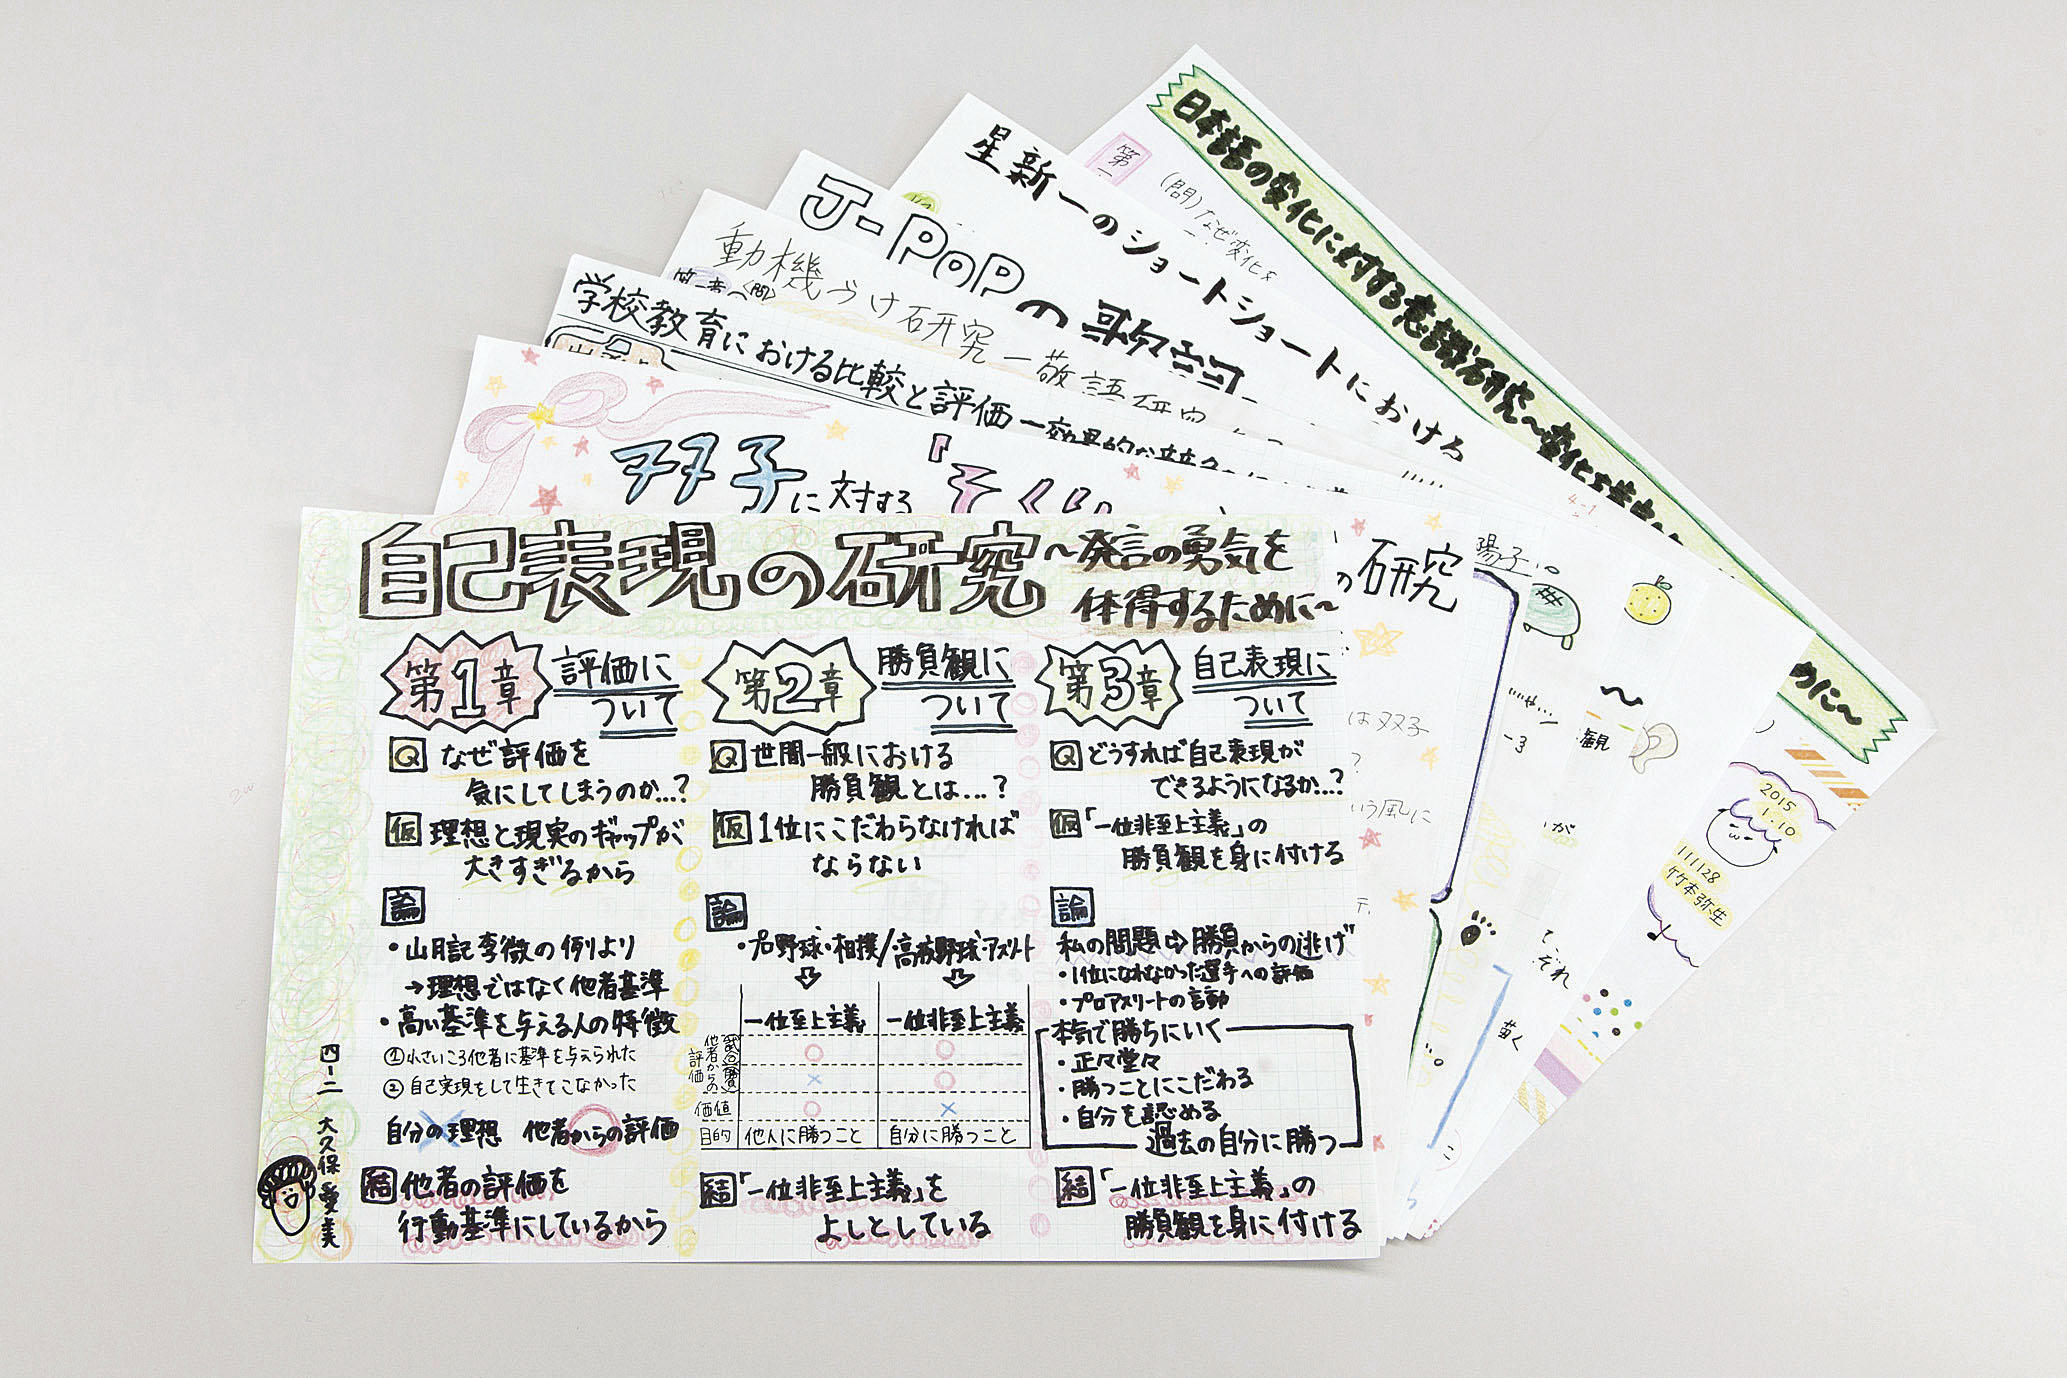 日本語の変化に対する意識る研究～変化を
めに～
第一
(問)なぜ変化を
星新一のショートショートにおける
J-POPの歌詞
動機づけ研究－敬語研究
第一章〈問〉
学校教育における比較と評価－効果的な
双子に対する「そくり
の研究
陽子
は双子
?
いう風に
～
観
-3
が
て、それ
描く
2015
1.10
111128
竹本弥生
自己表現の研究～発言の勇気を
体得するために～
第1章 評価に
ついて
Q なぜ評価を
気にしてしまうのか…?
仮 理想と現実のギャップが
大きすぎるから
論
・山月記 李徴の例より
→理想ではなく他者基準
・高い基準を与える人の特徴
①小さいころ他者に基準を与えられた
②自己実現をして生きてこなかった
自分の理想 他者からの評価
結 他者の評価を
行動基準にしているから
第2章 勝負観に
ついて
Q 世間一般における
勝負観とは…?
仮 1位にこだわらなければ
ならない
論
・プロ野球・相撲/高校野球・アスリート
一位至上主義 一位非至上主義
他者からの評価
試合 ○ ○
勝負 × ○
価値 ○ ×
目的 他人に勝つこと 自分に勝つこと
結 「一位非至上主義」を
よしとしている
第3章 自己表現に
ついて
Q どうすれば自己表現が
できるようになるか…?
仮 「一位非至上主義」の
勝負観を身に付ける
論
私の問題⇨勝負からの逃げ
・1位になれなかった選手への評価
・プロアスリートの言動
本気で勝ちにいく
・正々堂々
・勝つことにこだわる
・自分を認める
過去の自分に勝つ
結 「一位非至上主義」の
勝負観を身に付ける
四-二 大久保愛美